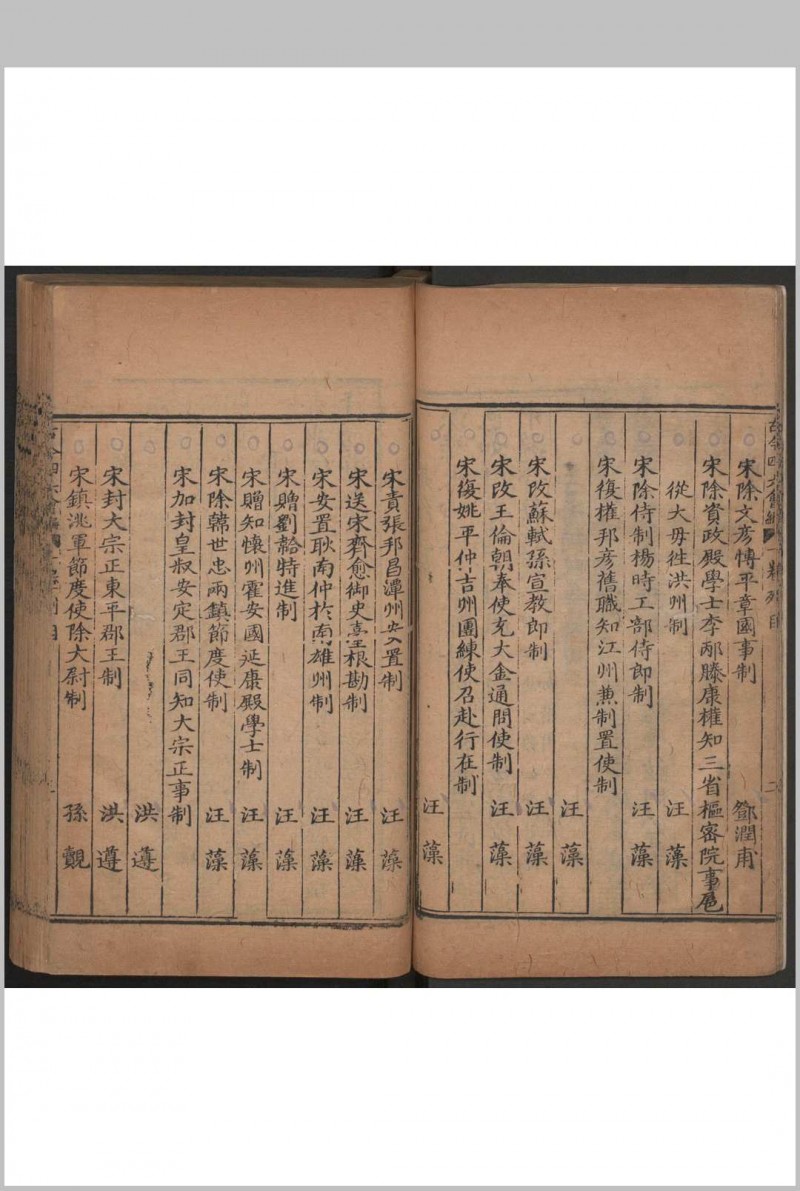 古今四六會編
目
二
宋除文彥博平章國事制 鄧潤甫
宋除資政殿學士李邴滕康權知三省樞密院事扈
從大母徃洪州制 汪藻
宋除侍制楊時工部侍郎制 汪藻
宋復權邦彥舊職知江州兼制置使制
汪藻
宋改蘇軾孫宣教郎制 汪藻
宋改王倫朝奉使充大金通問使制 汪藻
宋復姚平仲吉州團練使召赴行在制
汪藻
宋責張邦昌潭州安置制 汪藻
宋送宋齊愈御史臺根勘制 汪藻
宋安置耿南仲於南雄州制 汪藻
宋贈劉韐特進制 汪藻
宋贈知懷州霍安國延康殿學士制 汪藻
宋除韓世忠兩鎮節度使制 汪藻
宋加封皇叔安定郡王同知大宗正事制
洪遵
宋封大宗正東平郡王制 洪遵
宋鎮洮軍節度使除大尉制 孫覿